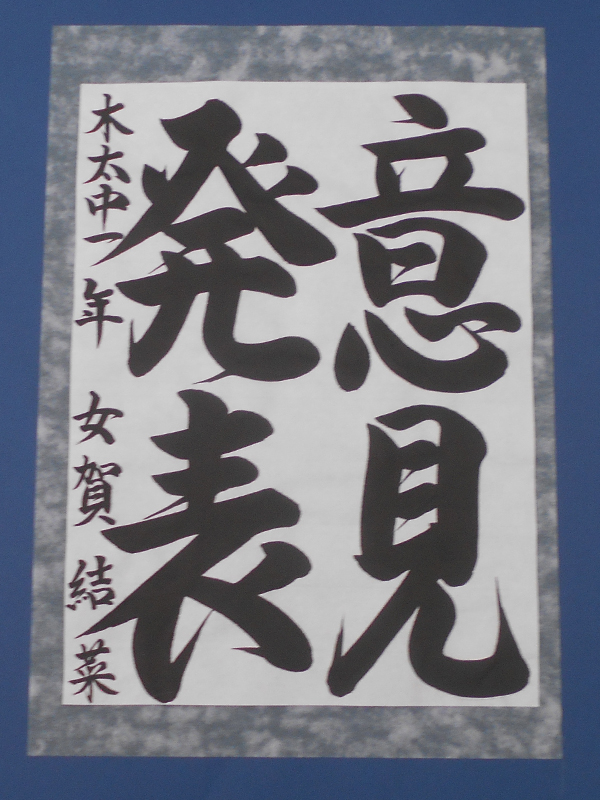 意見
発表
木太中一年 女賀結菜